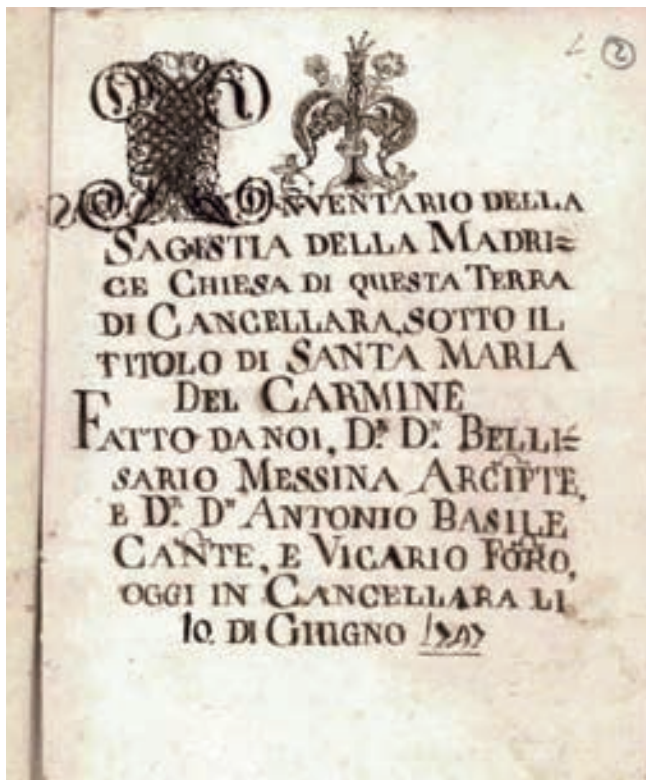 2
INVENTARIO DELLA
SAGRISTIA DELLA MADRI=
CE CHIESA DI QUESTA TERRA
DI CANCELLARA, SOTTO IL
TITOLO DI SANTA MARIA
DEL CARMINE
FATTO DA NOI, D.R D.N BELLI=
SARIO MESSINA ARCIPTE,
E D.R D.N ANTONIO BASILE
CANTE, E VICARIO FORO,
OGGI IN CANCELLARA LI
10. DI GIUGNO